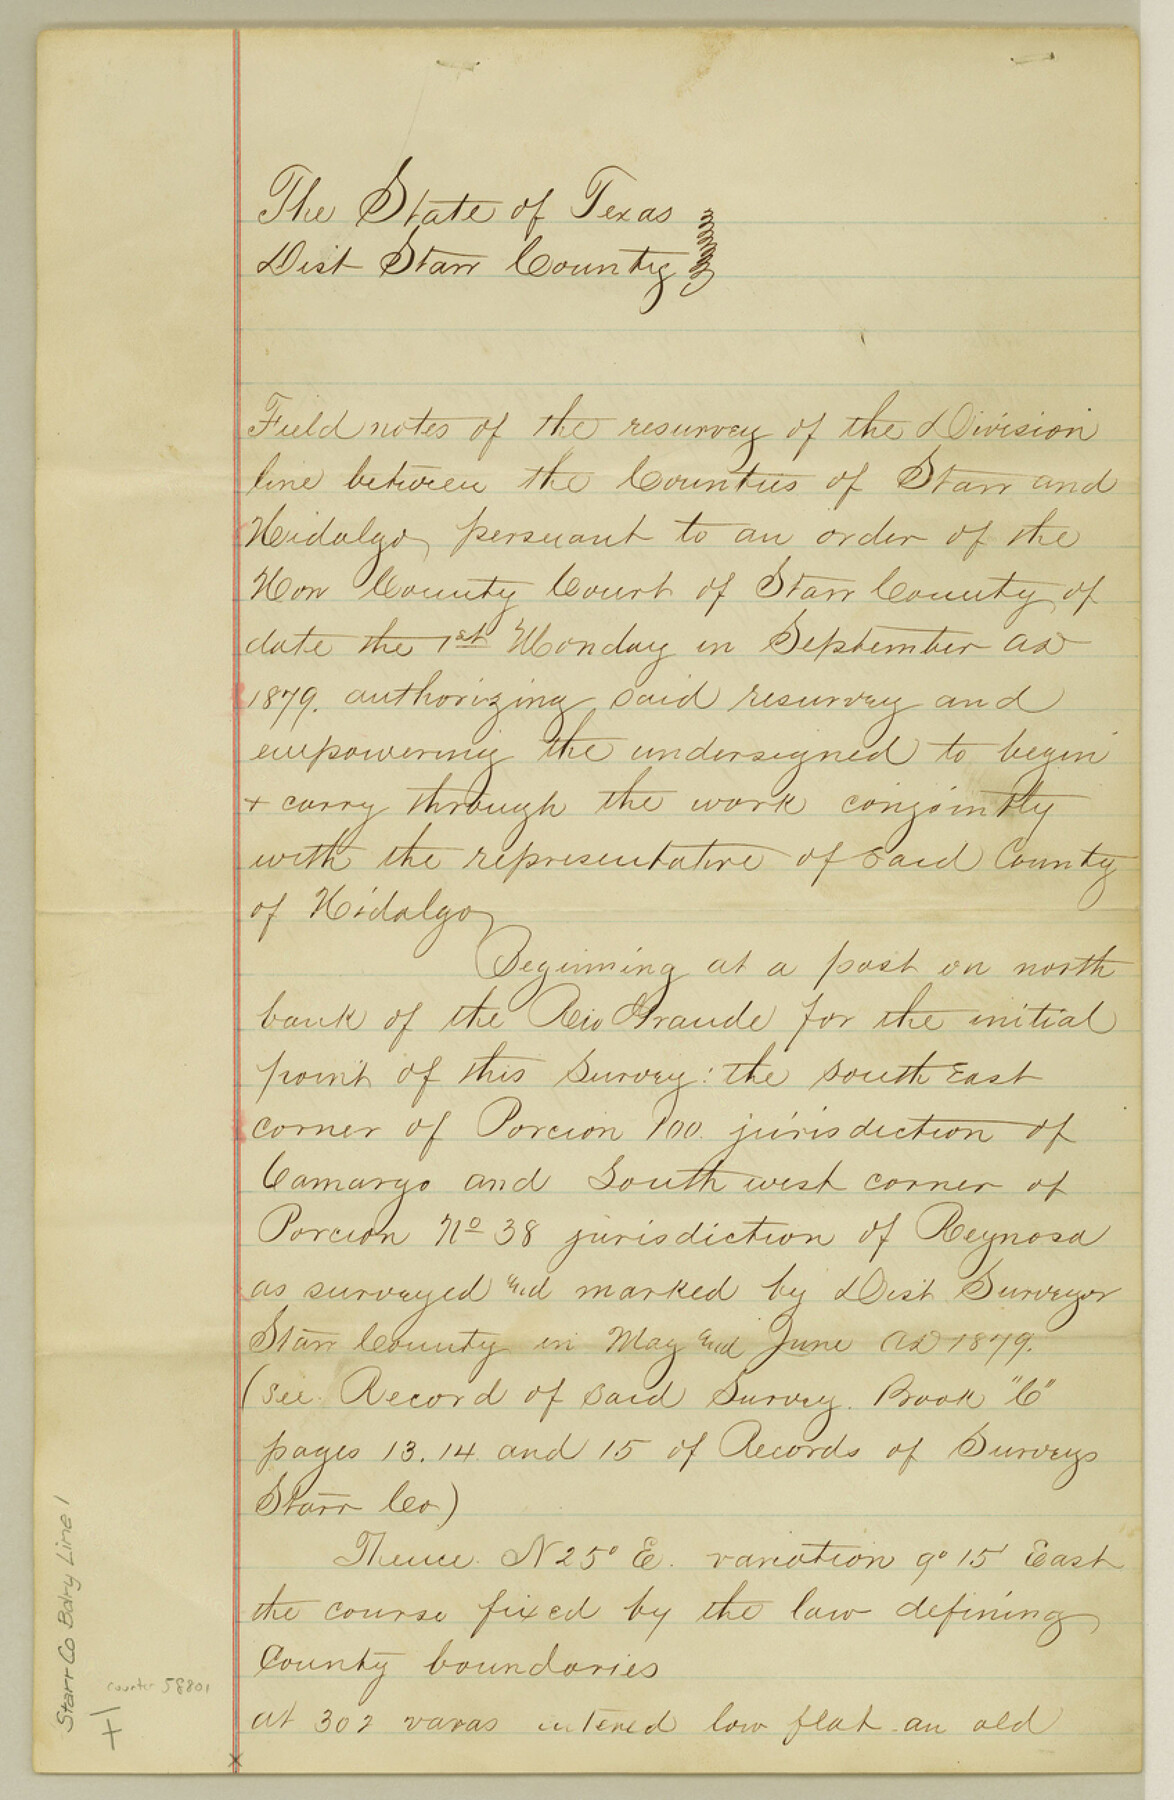 The State of Texas
Dist Starr County
Field notes of the resurvey of the Division
line between the Counties of Starr and
Hidalgo, persuant to an order of the
Hon County Court of Starr County of
date the 1st Monday in September AD
1879. authorizing said resurvey and
empowering the undersigned to begin
+ carry through the work conjointly
with the representative of said County
of Hidalgo
Beginning at a post on north
bank of the Rio Grande for the initial
point of this Survey: the south East
corner of Porcion 100. jurisdiction of
Camargo and South west corner of
Porcion No 38 jurisdiction of Reynosa
as surveyed and marked by Dist Surveyor
Starr County in May and June AD 1879.
(see Record of said Survey. Book "C"
pages 13. 14. and 15 of Records of Surveys
Starr Co)
Thence. N 25° E. variation 9° 15' East
the course fixed by the law defining
County boundaries
at 302 varas entered low flat an old
Starr Co Bdry Line 1
counter 58801